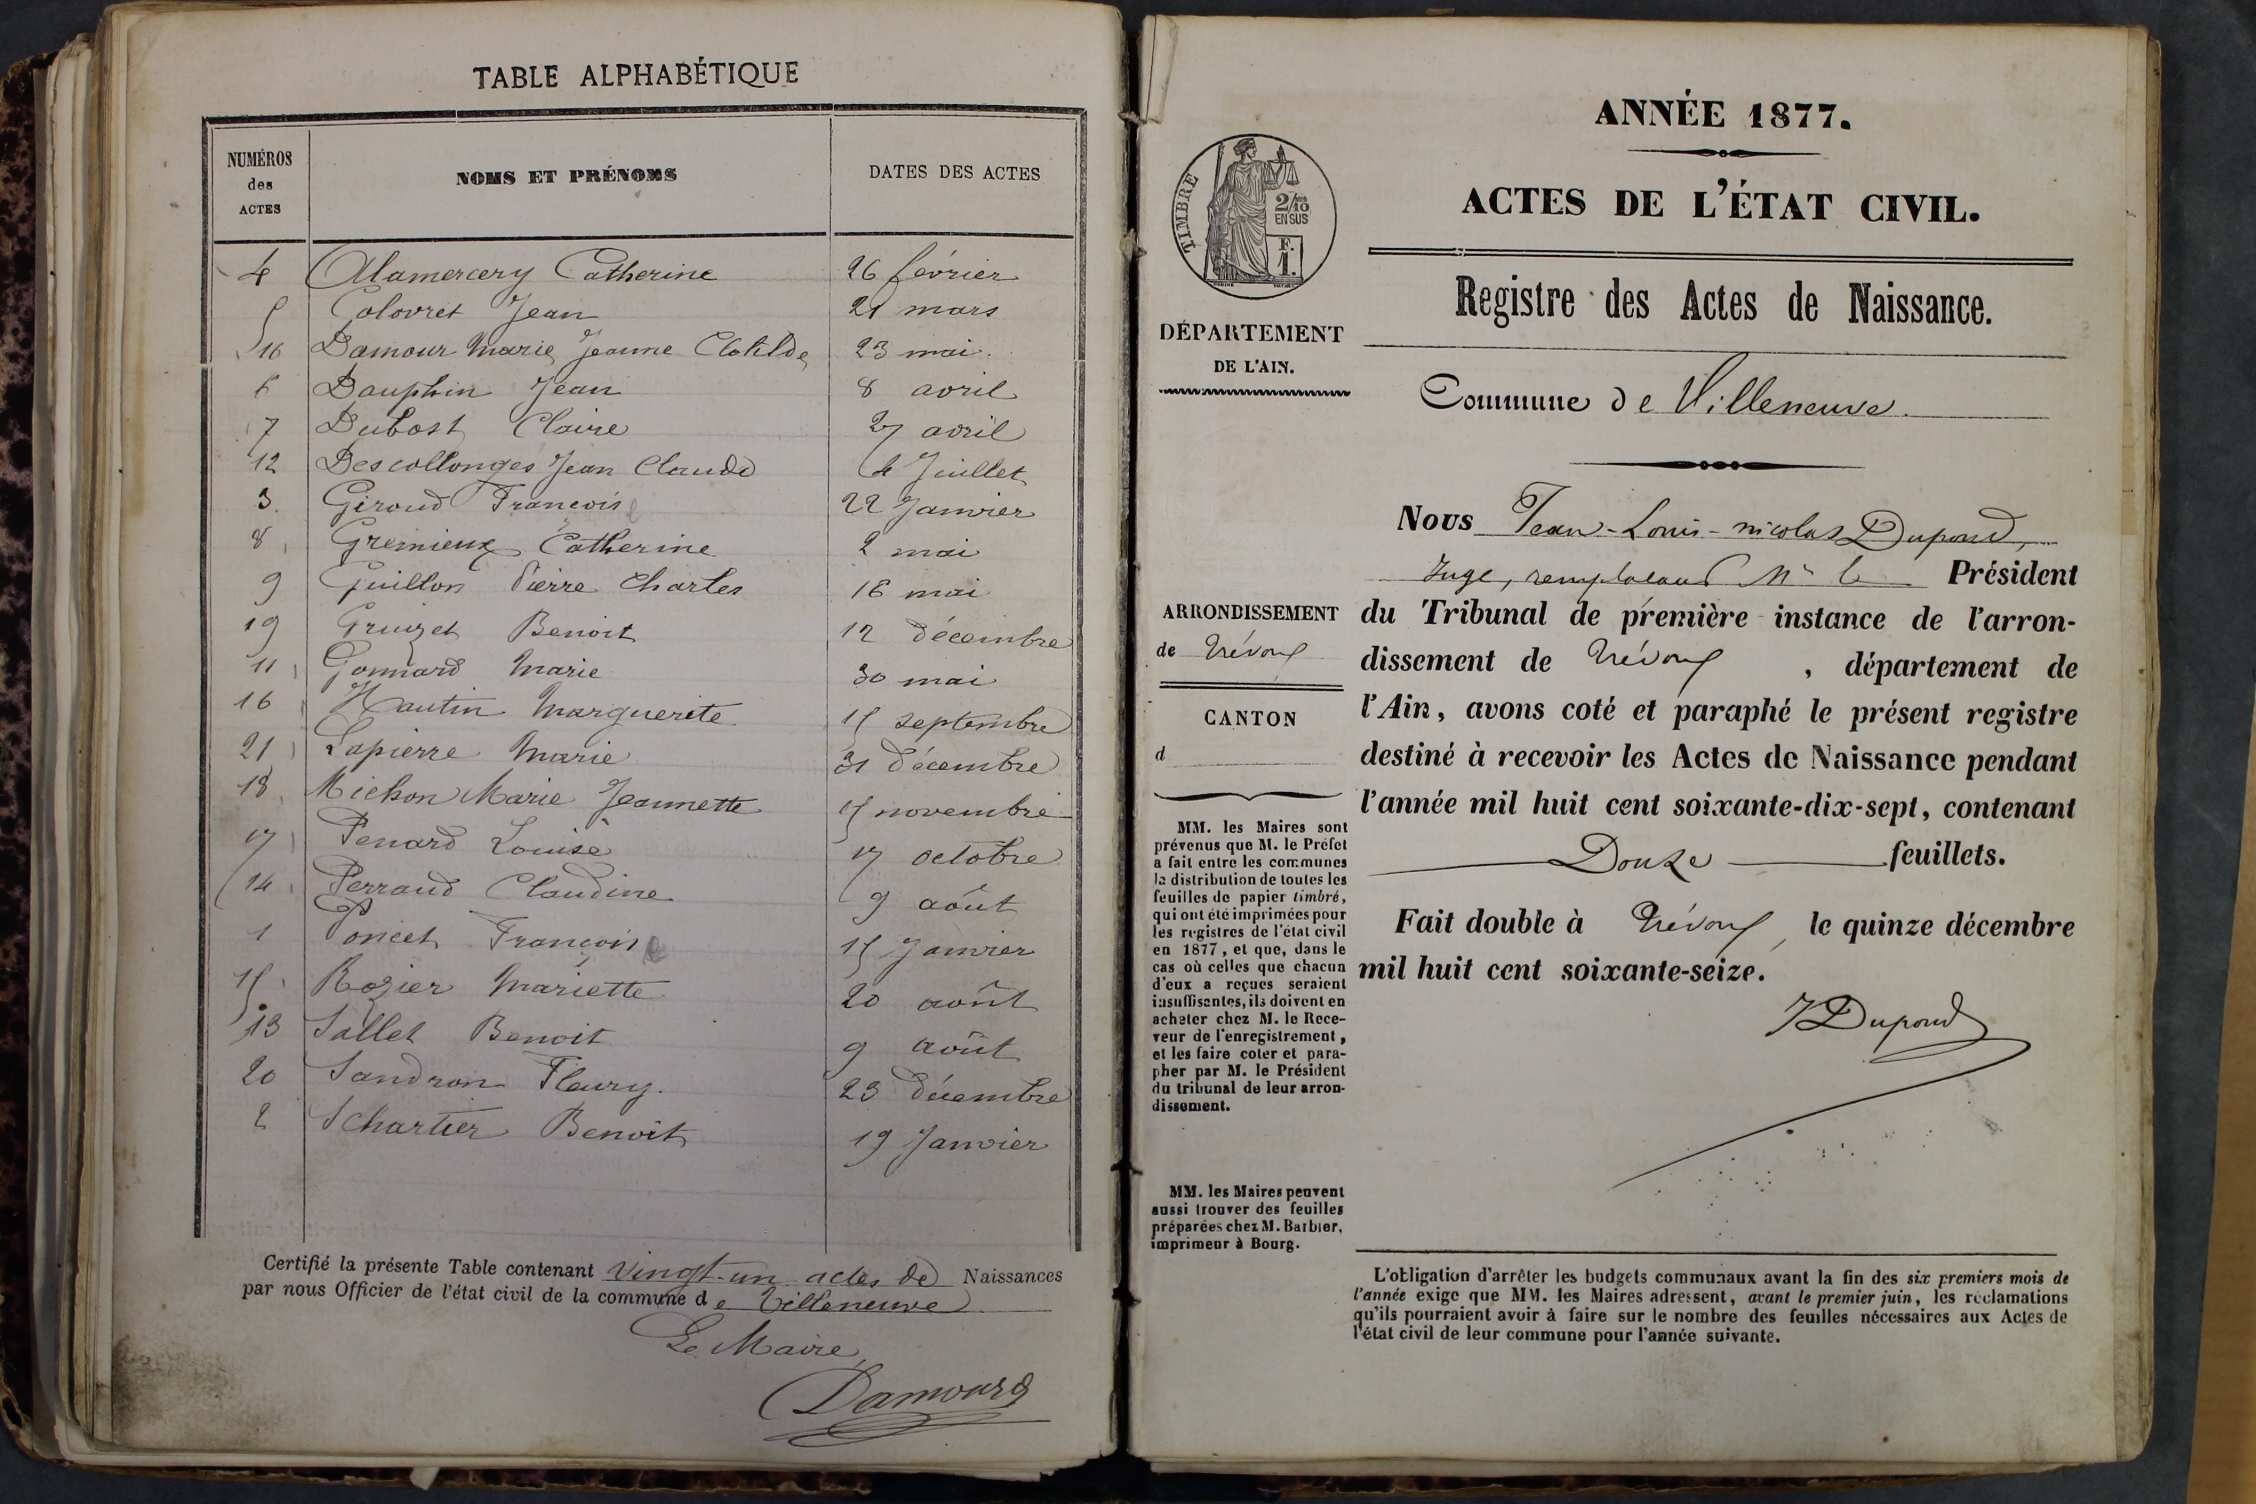 TABLE ALPHABÉTIQUE
NUMÉROS des ACTES
NOMS ET PRÉNOMS
DATES DES ACTES
4 Alamercery Catherine 26 février
5 Colovret Jean 21 mars
10 Damour Marie Jeanne Clotilde 23 mai
6 Dauphin Jean 8 avril
7 Dubost Claire 27 avril
12 Descollonges Jean Claude 4 Juillet
3 Giroud François 22 Janvier
8 Gremieux Catherine 2 mai
9 Guillon Pierre Charles 16 mai
19 Gruizet Benoit 12 décembre
11 Gonnard Marie 30 mai
16 Hautin Marguerite 15 septembre
21 Lapierre Marie 31 décembre
18 Michon Marie Jeannette 15 novembre
17 Penard Louise 17 octobre
14 Perraud Claudine 9 août
1 Poncet François 15 Janvier
15 Rozier Mariette 20 août
13 Sallet Benoit 9 août
20 Sandron Fleury. 23 décembre
2 Schartier Benoit 19 Janvier
Certifié la présente Table contenant Vingt-un actes de Naissances
par nous Officier de l'état civil de la commune de Villeneuve
Le Maire,
Damour
ANNÉE 1877.
ACTES DE L'ÉTAT CIVIL.
TIMBRE
2/10
EN SUS
F.
1.
DÉPARTEMENT
DE L'AIN.
Registre des Actes de Naissance.
Commune de Villeneuve.
Nous Jean-Louis-nicolas Dupond,
Juge, remplaçant Mr le Président
du Tribunal de première instance de l'arron-
dissement de Trévoux, département de
l'Ain, avons coté et paraphé le présent registre
destiné à recevoir les Actes de Naissance pendant
l'année mil huit cent soixante-dix-sept, contenant
Douze feuillets.
Fait double à Trévoux, le quinze décembre
mil huit cent soixante-seize.
JDupond
ARRONDISSEMENT
de Trévoux
CANTON
d
MM. les Maires sont
prévenus que M. le Préfet
a fait entre les communes
la distribution de toutes les
feuilles de papier timbré,
qui ont été imprimées pour
les registres de l'état civil
en 1877, et que, dans le
cas où celles que chacun
d'eux a reçues seraient
insuffisantes, ils doivent en
acheter chez M. le Rece-
veur de l'enregistrement,
et les faire coter et para-
pher par M. le Président
du tribunal de leur arron-
dissement.
MM. les Maires peuvent
aussi trouver des feuilles
préparées chez M. Barbier,
imprimeur à Bourg.
L'obligation d'arrêter les budgets communaux avant la fin des six premiers mois de
l'année exige que MM. les Maires adressent, avant le premier juin, les réclamations
qu'ils pourraient avoir à faire sur le nombre des feuilles nécessaires aux Actes de
l'état civil de leur commune pour l'année suivante.